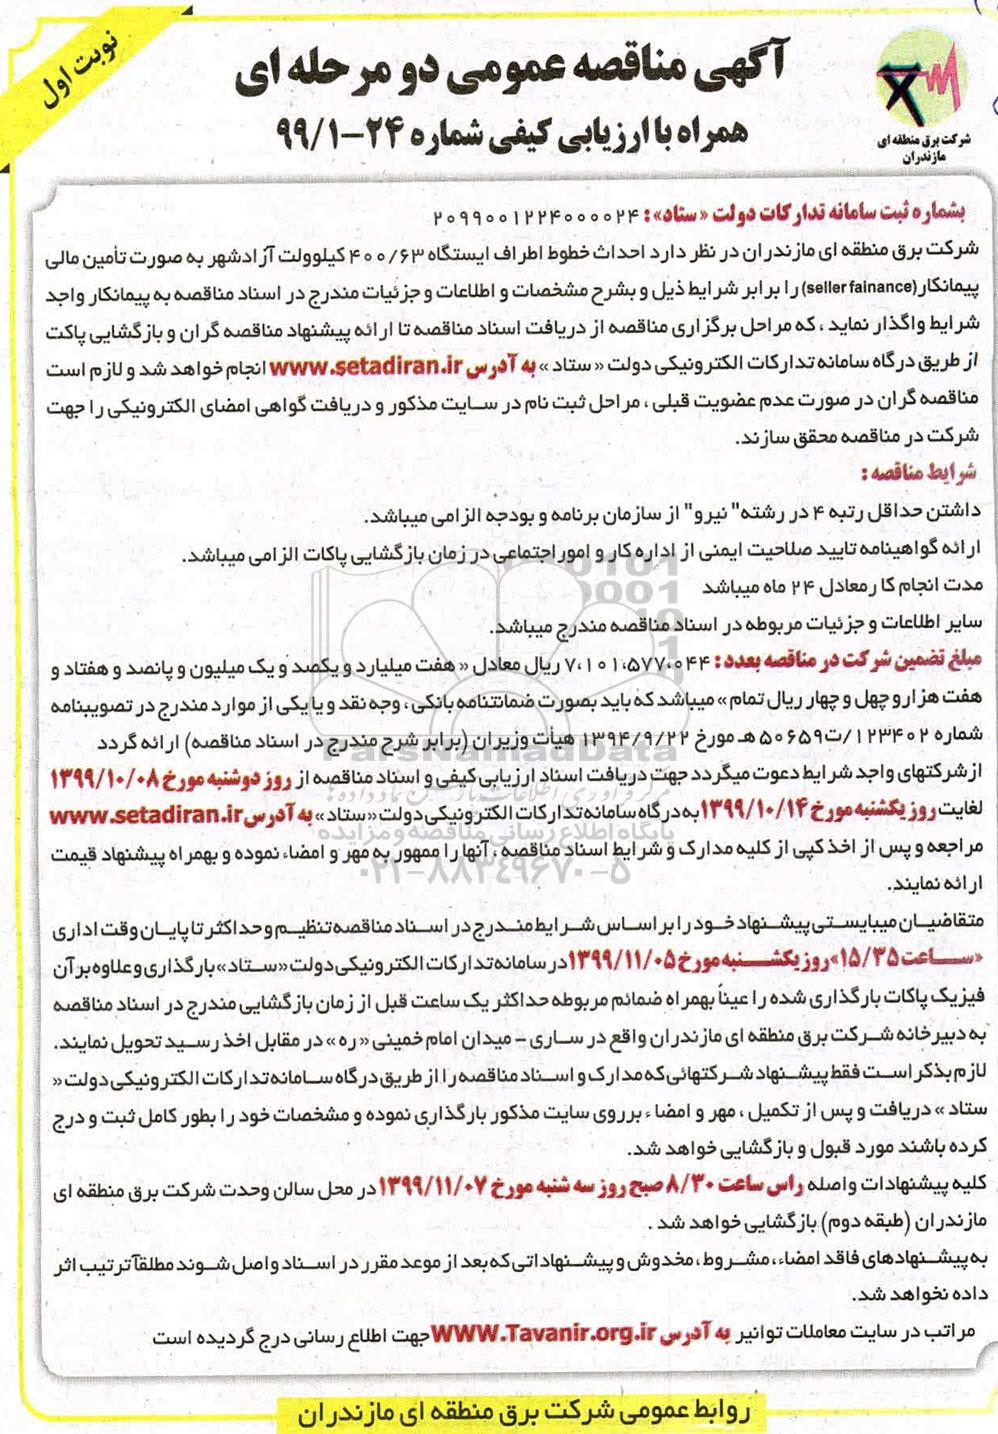 نوبت اول
آگهی مناقصه عمومی دو مرحله ای
همراه با ارزیابی کیفی شماره ۲۴-۹۹/۱
شرکت برق منطقه ای
مازندران
بشماره ثبت سامانه تدارکات دولت «ستاد»: ۲۰۹۹۰۰۱۲۲۴۰۰۰۰۲۴
شرکت برق منطقه ای مازندران در نظر دارد احداث خطوط اطراف ایستگاه ۴۰۰/۶۳ کیلوولت آزادشهر به صورت تأمین مالی
پیمانکار(seller fainance) را برابر شرایط ذیل و بشرح مشخصات و اطلاعات و جزئیات مندرج در اسناد مناقصه به پیمانکار واجد
شرایط واگذار نماید ، که مراحل برگزاری مناقصه از دریافت اسناد مناقصه تا ارائه پیشنهاد مناقصه گران و بازگشایی پاکت
از طریق درگاه سامانه تدارکات الکترونیکی دولت « ستاد » به آدرس www.setadiran.ir انجام خواهد شد و لازم است
مناقصه گران در صورت عدم عضویت قبلی ، مراحل ثبت نام در سایت مذکور و دریافت گواهی امضای الکترونیکی را جهت
شرکت در مناقصه محقق سازند.
شرایط مناقصه :
داشتن حداقل رتبه ۴ در رشته" نیرو" از سازمان برنامه و بودجه الزامی میباشد.
ارائه گواهینامه تایید صلاحیت ایمنی از اداره کار و امور اجتماعی در زمان بازگشایی پاکات الزامی میباشد.
مدت انجام کار معادل ۲۴ ماه میباشد
سایر اطلاعات و جزئیات مربوطه در اسناد مناقصه مندرج میباشد.
مبلغ تضمین شرکت در مناقصه بعدد: ۷،۱۰۱،۵۷۷،۰۴۴ ریال معادل « هفت میلیارد و یکصد و یک میلیون و پانصد و هفتاد و
هفت هزار و چهل و چهار ریال تمام » میباشد که باید بصورت ضمانتنامه بانکی ، وجه نقد و یا یکی از موارد مندرج در تصویبنامه
شماره ۱۲۳۴۰۲/ت۵۰۶۵۹ هـ مورخ ۱۳۹۴/۹/۲۲ هیأت وزیران (برابر شرح مندرج در اسناد مناقصه) ارائه گردد
ParsNamadData
از شرکتهای واجد شرایط دعوت میگردد جهت دریافت اسناد ارزیابی کیفی و اسناد مناقصه از روز دوشنبه مورخ ۱۳۹۹/۱۰/۰۸
لغایت روز یکشنبه مورخ ۱۳۹۹/۱۰/۱۴ به درگاه سامانه تدارکات الکترونیکی دولت « ستاد » به آدرس www.setadiran.ir
پایگاه اطلاع رسانی مناقصه و مزایده
مراجعه و پس از اخذ کپی از کلیه مدارک و شرایط اسناد مناقصه ، آنها را ممهور به مهر و امضاء نموده و بهمراه پیشنهاد قیمت
۰۲۱-۸۸۳۴۹۶۷۰-۵
ارائه نمایند.
متقاضیان میبایستی پیشنهاد خود را بر اساس شرایط مندرج در اسناد مناقصه تنظیم و حداکثر تا پایان وقت اداری
«ساعت ۱۵/۳۵» روز یکشنبه مورخ ۱۳۹۹/۱۱/۰۵ در سامانه تدارکات الکترونیکی دولت «ستاد» بارگذاری و علاوه بر آن
فیزیک پاکات بارگذاری شده را عیناً بهمراه ضمائم مربوطه حداکثر یک ساعت قبل از زمان بازگشایی مندرج در اسناد مناقصه
به دبیرخانه شرکت برق منطقه ای مازندران واقع در ساری - میدان امام خمینی « ره » در مقابل اخذ رسید تحویل نمایند.
لازم بذکر است فقط پیشنهاد شرکتهائی که مدارک و اسناد مناقصه را از طریق درگاه سامانه تدارکات الکترونیکی دولت «
ستاد » دریافت و پس از تکمیل ، مهر و امضاء بر روی سایت مذکور بارگذاری نموده و مشخصات خود را بطور کامل ثبت و درج
کرده باشند مورد قبول و بازگشایی خواهد شد.
کلیه پیشنهادات واصله راس ساعت ۸/۳۰ صبح روز سه شنبه مورخ ۱۳۹۹/۱۱/۰۷ در محل سالن وحدت شرکت برق منطقه ای
مازندران (طبقه دوم) بازگشایی خواهد شد .
به پیشنهادهای فاقد امضاء، مشروط، مخدوش و پیشنهاداتی که بعد از موعد مقرر در اسناد واصل شوند مطلقاً ترتیب اثر
داده نخواهد شد.
مراتب در سایت معاملات توانیر به آدرس WWW.Tavanir.org.ir جهت اطلاع رسانی درج گردیده است
روابط عمومی شرکت برق منطقه ای مازندران